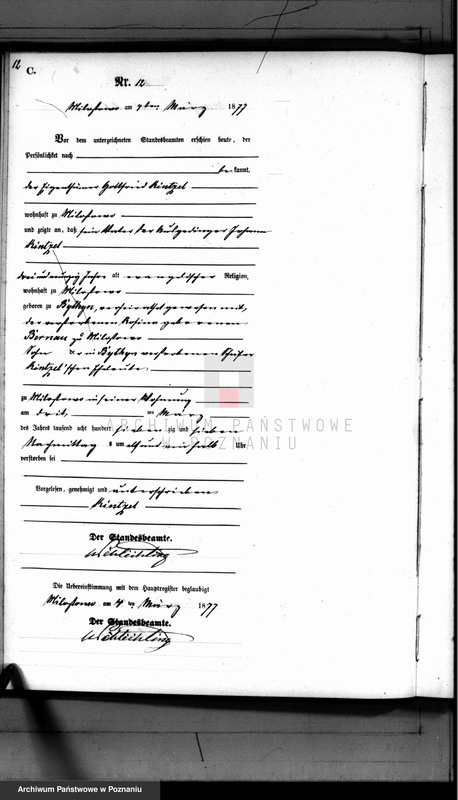 12
C.
Nr. 12
Milostowo am 4ten März 1877
Vor dem unterzeichneten Standesbeamten erschien heute, der
Persönlichkeit nach
bekannt,
der Eigenthümer Gottfried Kintzel
wohnhaft zu Milostowo
und zeigte an, daß sein Vater der Ausgedinger Johann
Kintzel
dreiundneunzig Jahre alt evangelischer Religion,
wohnhaft zu Milostowo
geboren zu Bythyn, verheirathet gewesen mit
der verstorbenen Rosina geborenen
Bernau zu Milostowo
Sohn der in Bythyn verstorbenen Schäfer
Kintzel'schen Eheleute
zu Milostowo in seiner Wohnung
am drit ten März
des Jahres tausend acht hundert siebenzig und sieben
Nachmittags um Uhr
verstorben sei
Vorgelesen, genehmigt und unterschrieben
Kintzel
Der Standesbeamte.
Die Uebereinstimmung mit dem Hauptregister beglaubigt
Milostowo am 4 ten März 1877
Der Standesbeamte.
ARCHIWUM PAŃSTWOWE
W POZNANIU
Archiwum Państwowe w Poznaniu